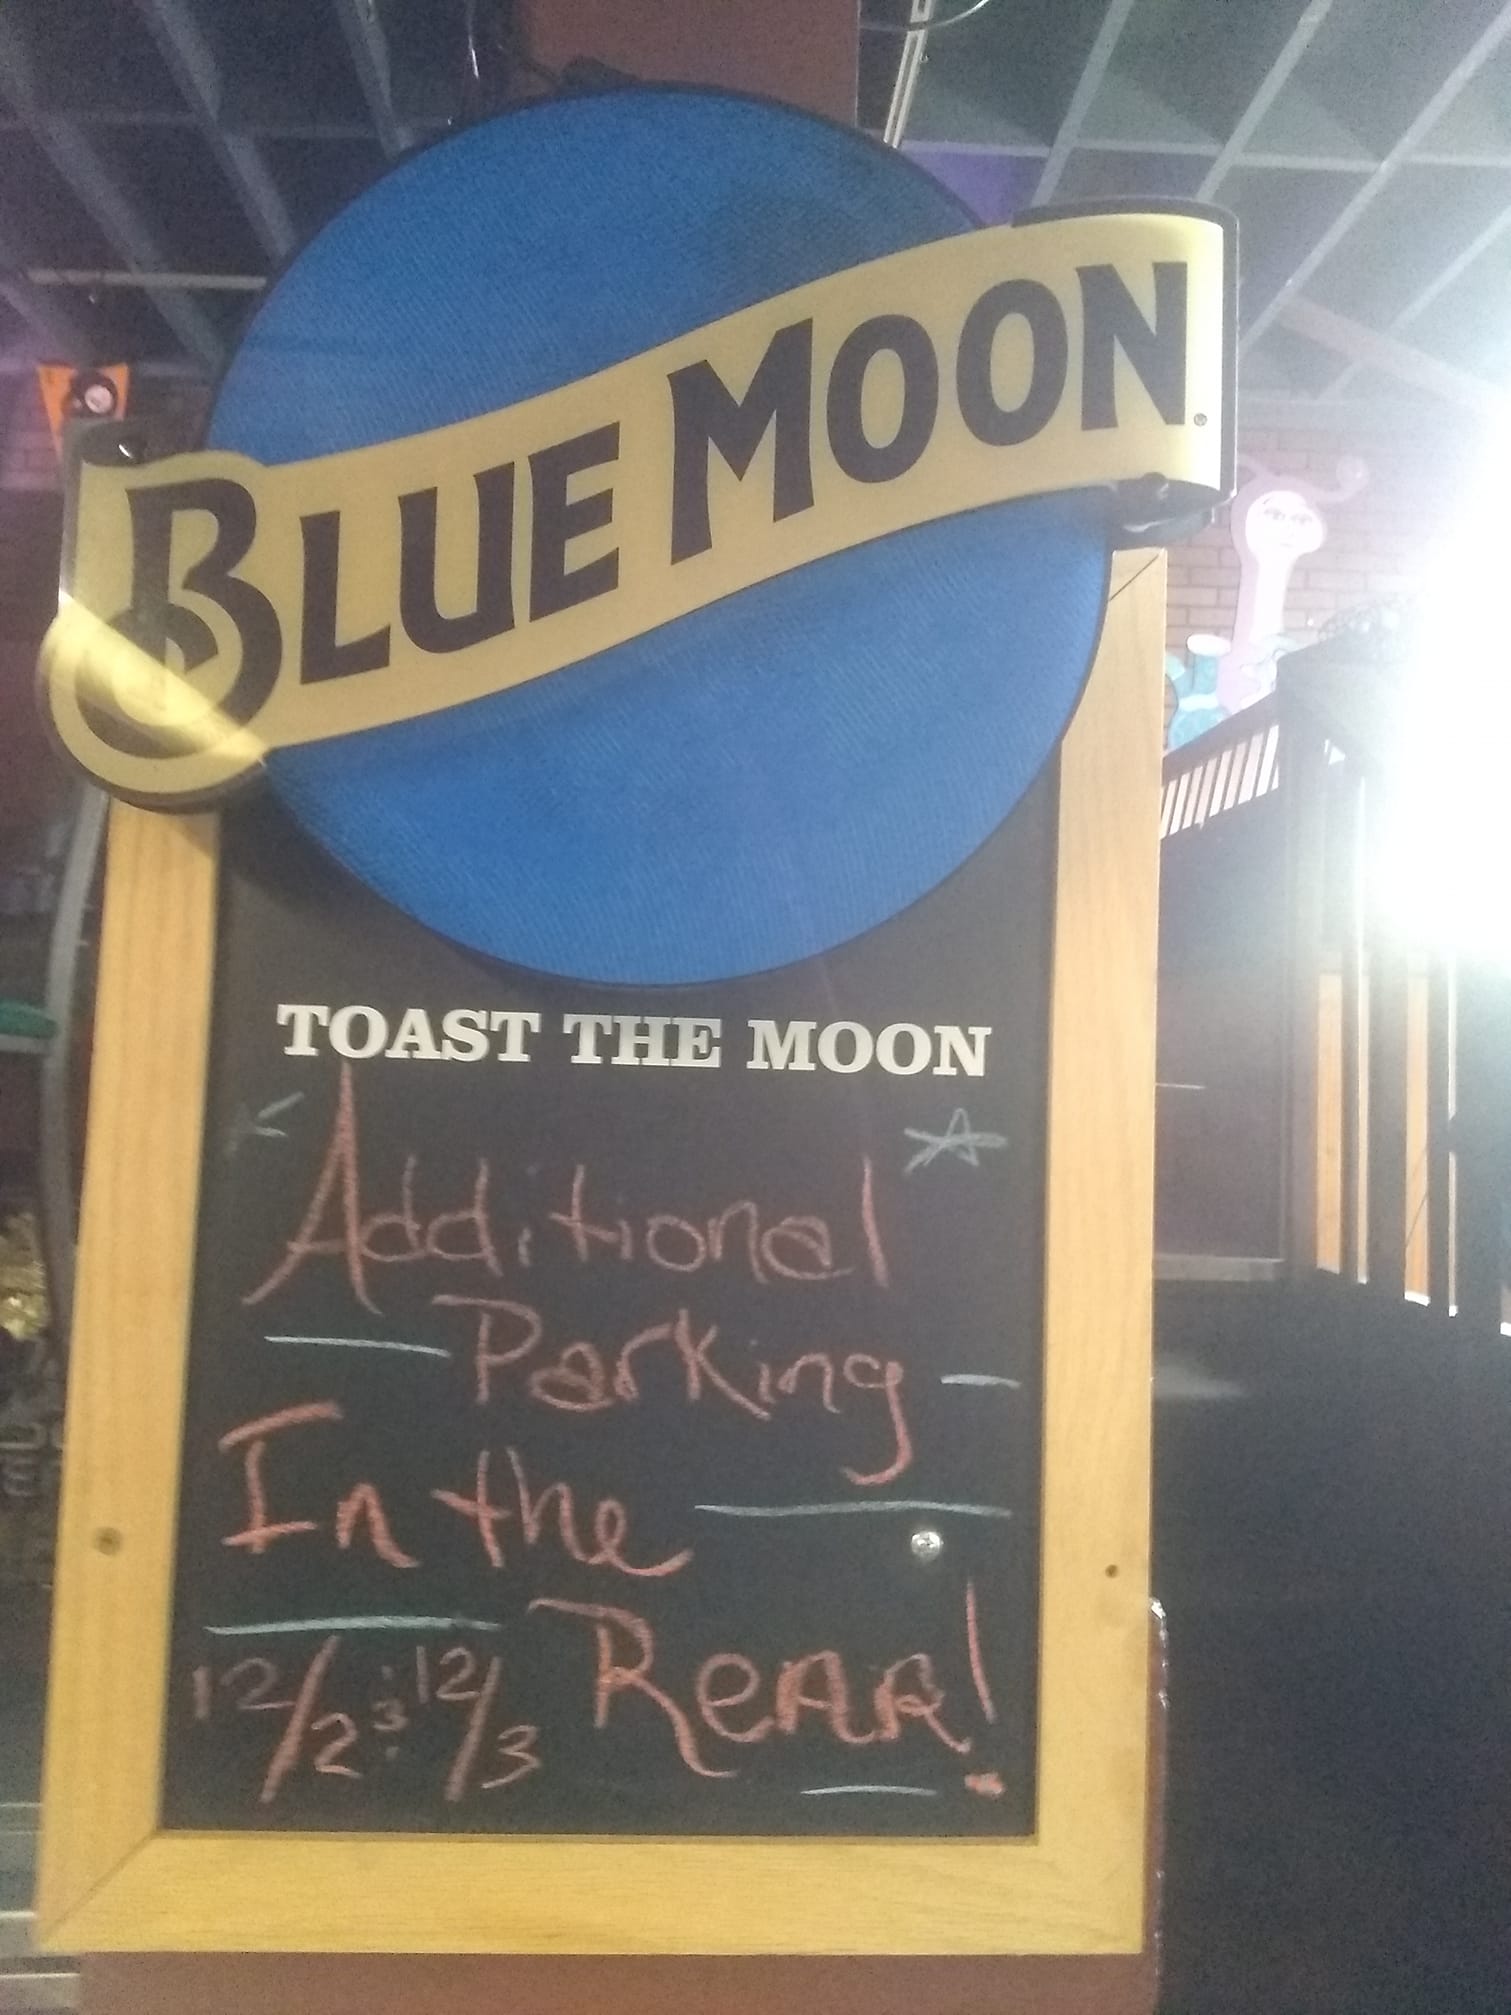 BLUE MOON
TOAST THE MOON
Additional
Parking
In the
Rear!
12/2 & 12/3